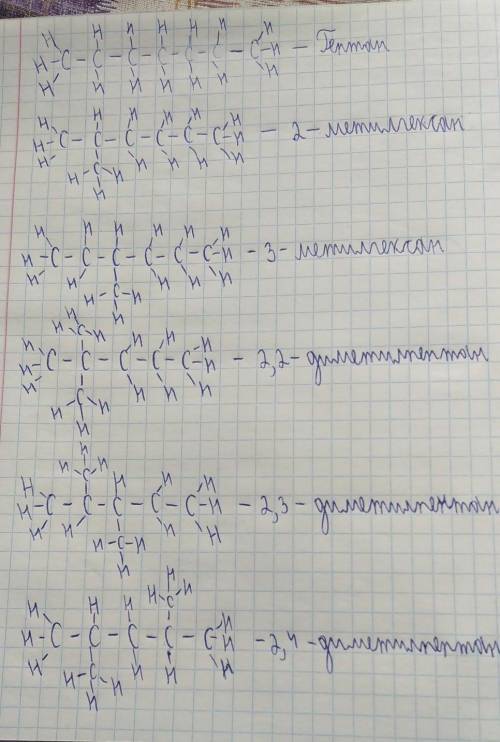 H H H H H H H
H – C – C – C – C – C – C – C – H – Гептан
H H H H H H H
H H H H H H
H – C – C – C – C – C – C – H – 2-метилгексан
H H H H H
H – C – H
H
H H H H H H
H – C – C – C – C – C – C – H – 3-метилгексан
H H H H H
H – C – H
H
H C H
H H H H
H – C – C – C – C – C – H – 2,2-диметилпентан
H H H H
H C H
H
H
H – C – H
H H H H
H – C – C – C – C – C – H – 2,3-диметилпентан
H H H H
H – C – H
H
H
H – C – H
H H H H
H – C – C – C – C – C – H – 2,4-диметилпентан
H H H H
H – C – H
H